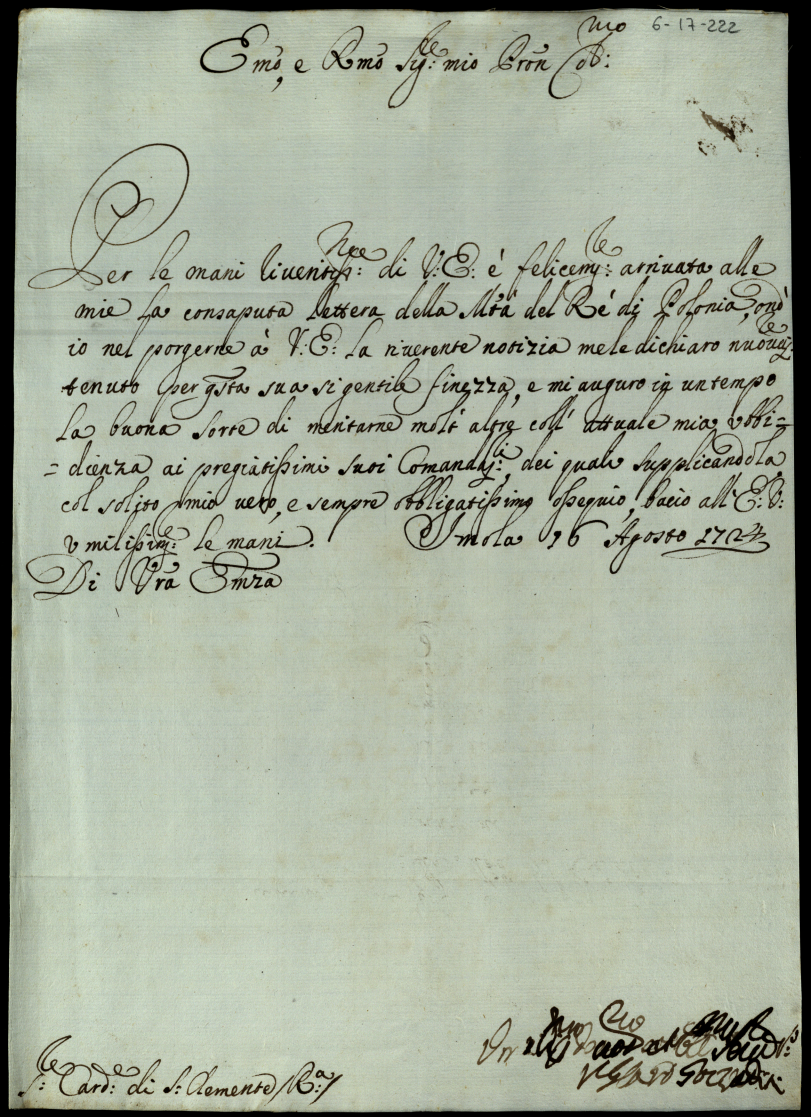 6-17-222
Emo, e Rmo Sig:re mio Pron Cob:mo
Per le mani di V: E: é felicem:te arrivata alle
mie la consaputa lettera della Mtà del Ré di Polonia, ond'
io nel porgerne à V: E: la riverente notizia me le dichiaro nuovam:te
tenuto per qsta sua si gentile finezza, e mi auguro in un tempo
la buona sorte di meritarne molt' altre coll' attuale mia ubbi=
=dienza ai pregiatissimi suoi Comandam:ti, dei quali supplicandola
col solito mio vero, e sempre obbligatissimo ossequio, bacio all' E: V:
umilissim:e le mani. Imola 16 Agosto 1724
Di Vra Emza
S:re Card:e di S: Clemente / R:a /